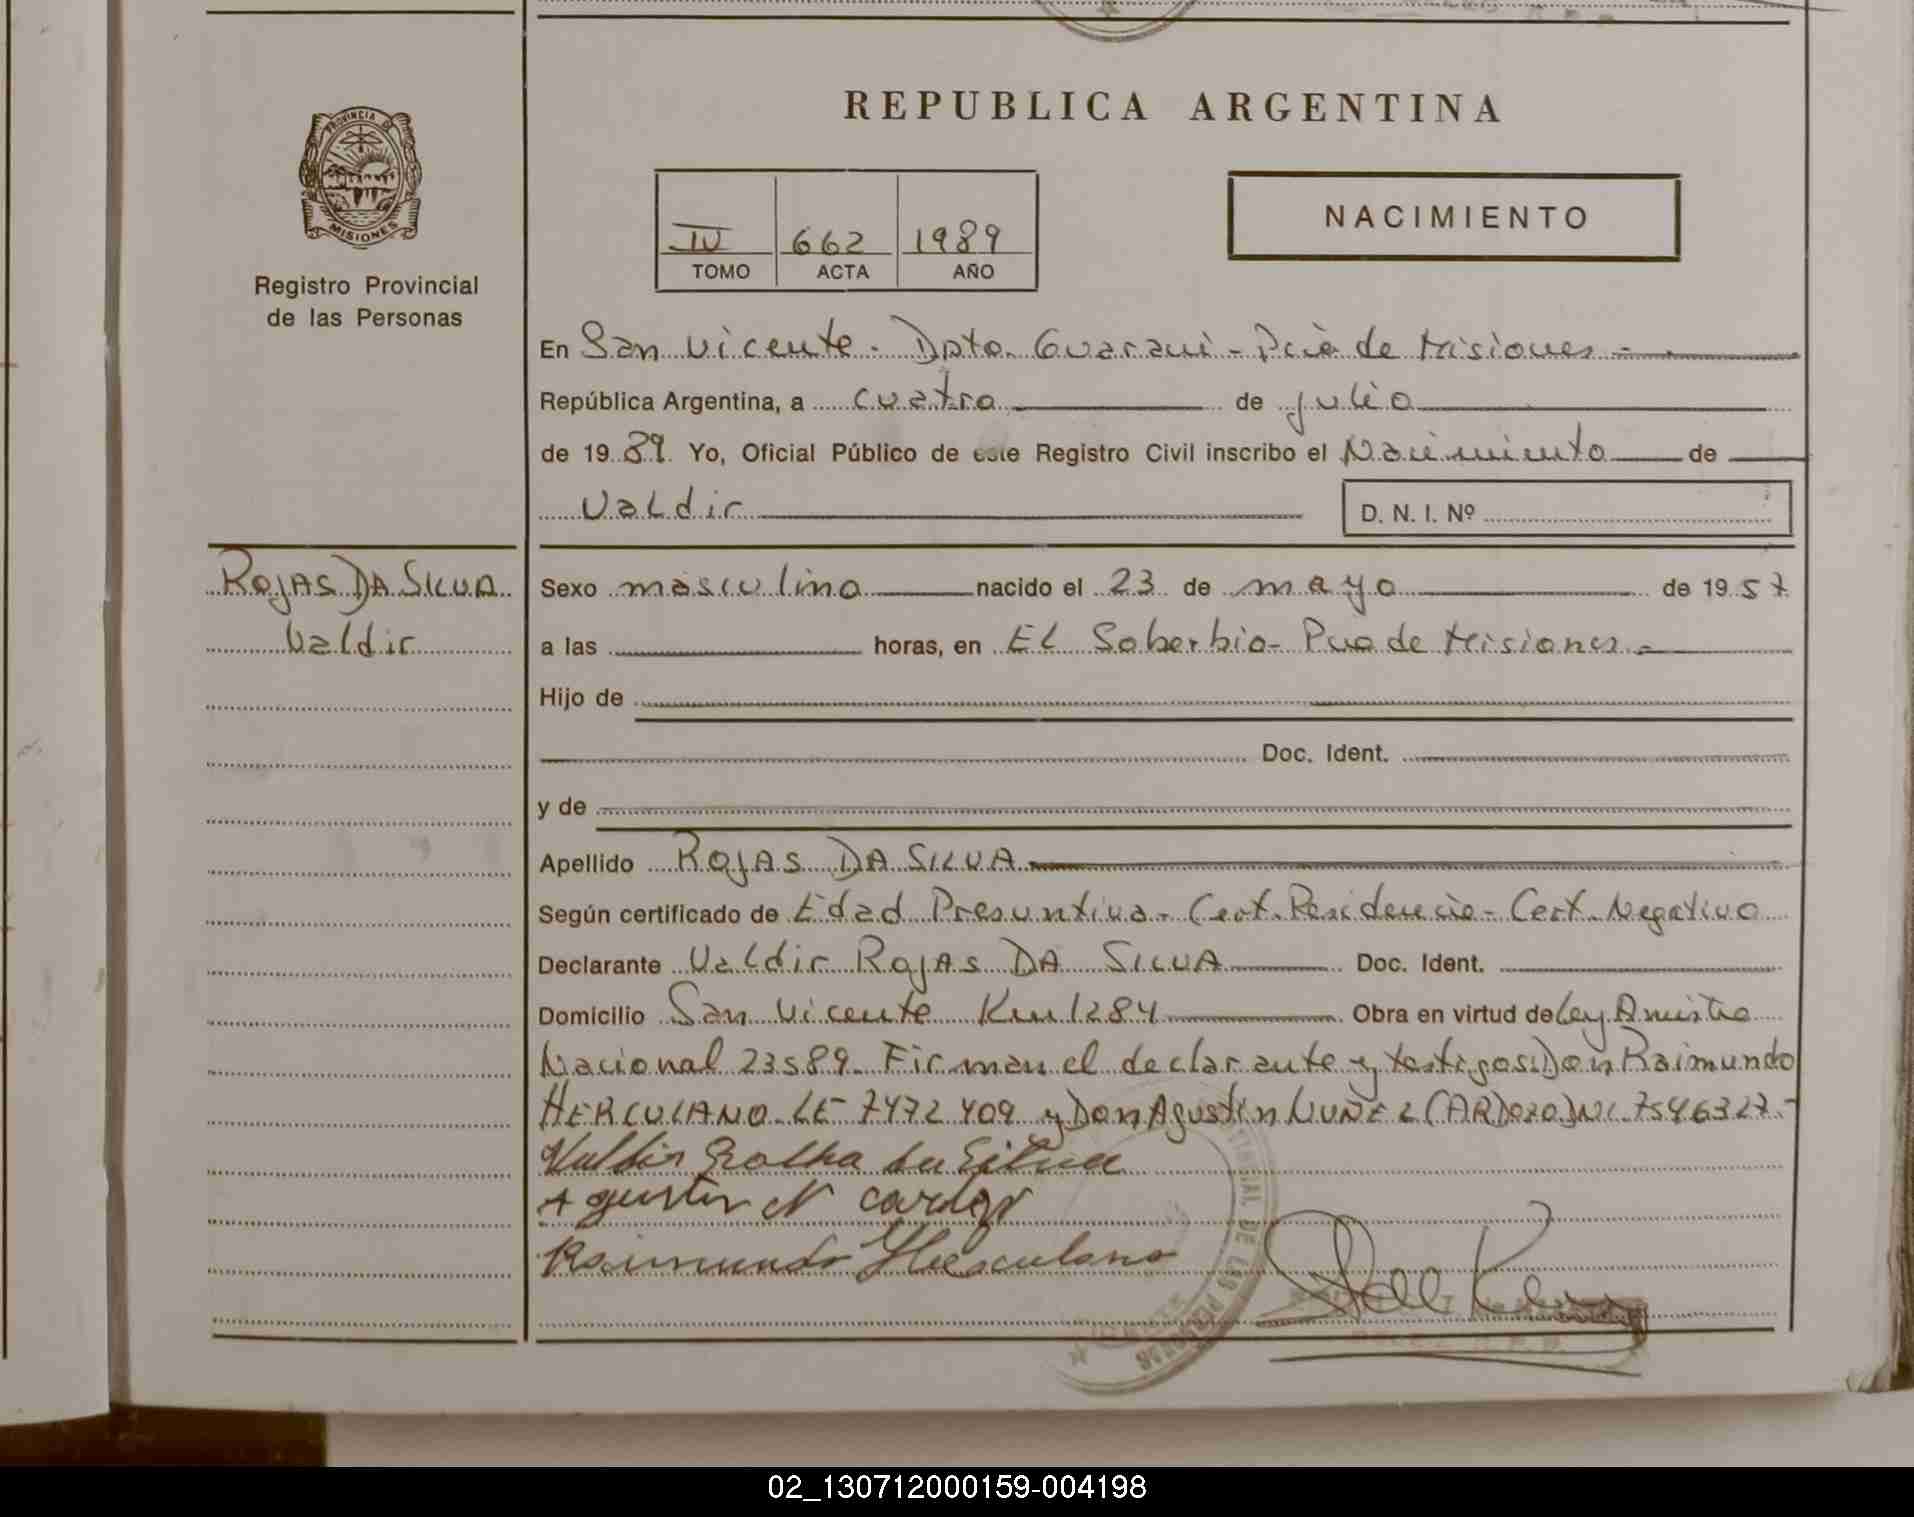 REPUBLICA ARGENTINA
PROVINCIA DE
MISIONES
Registro Provincial
de las Personas
IV 662 1989
TOMO ACTA AÑO
NACIMIENTO
En San Vicente - Dpto. Guarani - Pcia de Misiones -
República Argentina, a cuatro de julio
de 1989 Yo, Oficial Público de este Registro Civil inscribo el Nacimiento de
Valdir D. N. I. Nº
ROJAS DA SILVA
Valdir
Sexo masculino nacido el 23 de mayo de 1957
a las horas, en EL Soberbio - Pcia de Misiones -
Hijo de
Doc. Ident.
y de
Apellido ROJAS DA SILVA
Según certificado de Edad Presuntiva - Cert. Residencia - Cert. Negativo
Declarante Valdir ROJAS DA SILVA Doc. Ident.
Domicilio San Vicente Km 1284 Obra en virtud de Ley Amistia
Nacional 23589. Firman el declarante y testigos: Don Raimundo
HERCULANO LE 7472409 y Don Agustin NUÑEZ CARDOZO DNI 7546327.-
da Silva
Agustin N cardozo
Raimundo Herculano
DE LAS PERSONAS
02_130712000159-004198